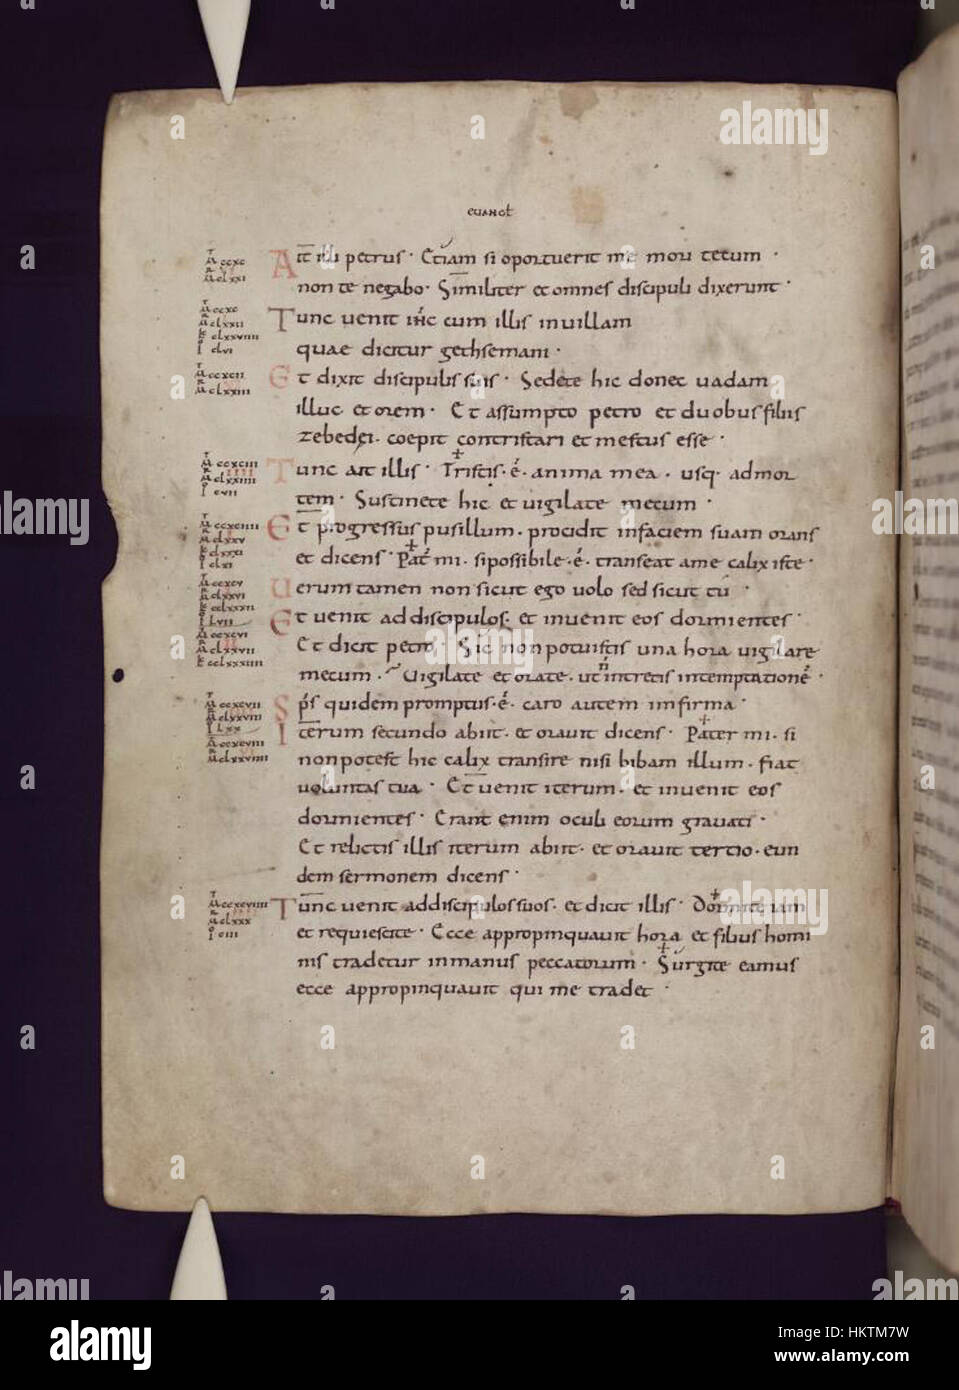 EUANGL
Aıt illi petrus · Etiam si oportuerit me mori tecum ·
non te negabo · Similiter et omnes discipuli dixerunt ·
Tunc uenit ihc cum illis inuillam
quae dicitur gethsemani ·
Et dixit discipulis suis · Sedete hic donec uadam
illuc et orem · Et assumpto petro et duobus filiis
zebedei · coepit contristari et mestus esse ·
Tunc ait illis · Tristis · ē · anima mea · usq· admor
tem · Sustinete hic et uigilate mecum ·
Et progressus pusillum · procidit infaciem suam orans
et dicens · Pat mi · sipossibile · ē · transeat ame calix iste ·
Uerum tamen non sicut ego uolo sed sicut tu ·
Et uenit addiscipulos · et inuenit eos dormientes ·
Et dicit petro · Sic non potuistis una hora uigilare
mecum · Uigilate et orate · ut n intretis intemptationē ·
Sps quidem promptus · ē · caro autem infirma ·
Iterum secundo abiit · et orauit dicens · Pater mi · si
nonpotest hic calix transire nisi bibam illum · fiat
uoluntas tua · Et uenit iterum · et inuenit eos
dormientes · Erant enim oculi eorum grauati ·
Et relictis illis iterum abiit · et orauit tertio · eun
dem sermonem dicens ·
Tunc uenit addiscipulos suos · et dicit illis · Dormite iam
et requiescite · Ecce appropinquauit hora et filius homi
nis tradetur inmanus peccatorum · Surgite eamus
ecce appropinquauit qui me tradet ·
alamy
Image ID: HKTM7W
www.alamy.com